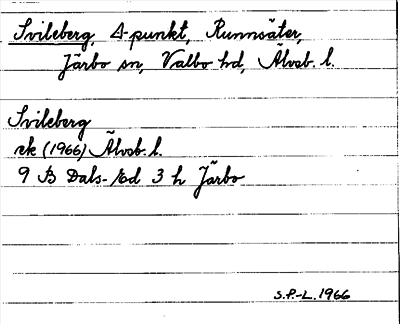 Svileberg, Δ-punkt, Runnsäter,
Järbo sn, Valbo hd, Älvsb. l.
Svileberg
ek (1966) Älvsb. l.
9 B Dals-Ed 3 h Järbo
S.P.-L. 1966